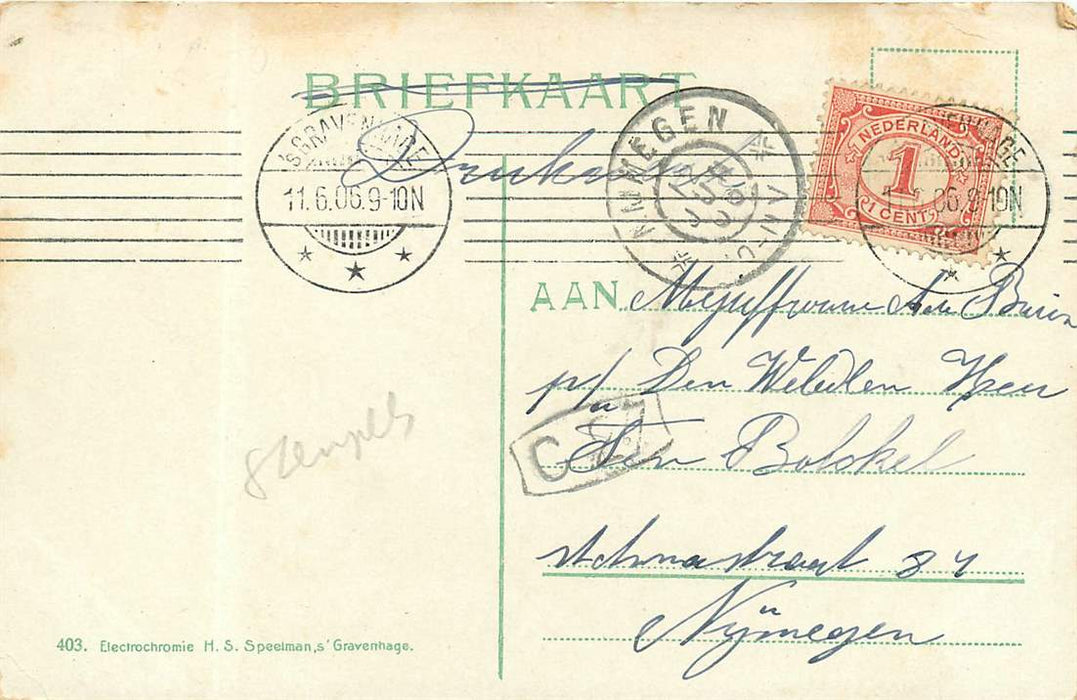 BRIEFKAART
Drukw
'S GRAVENHAGE
11.6.06.9-10N
NIJMEGEN
NEDERLAND
1
1 CENT
'S GRAVENHAGE
11.6.06.9-10N
AAN Mejuffrouw A de
p/a Den WelEdlen Heer
Ten Bolskel
C
straat 84
Nijmegen
stempels
403. Electrochromie H. S. Speelman, s' Gravenhage.